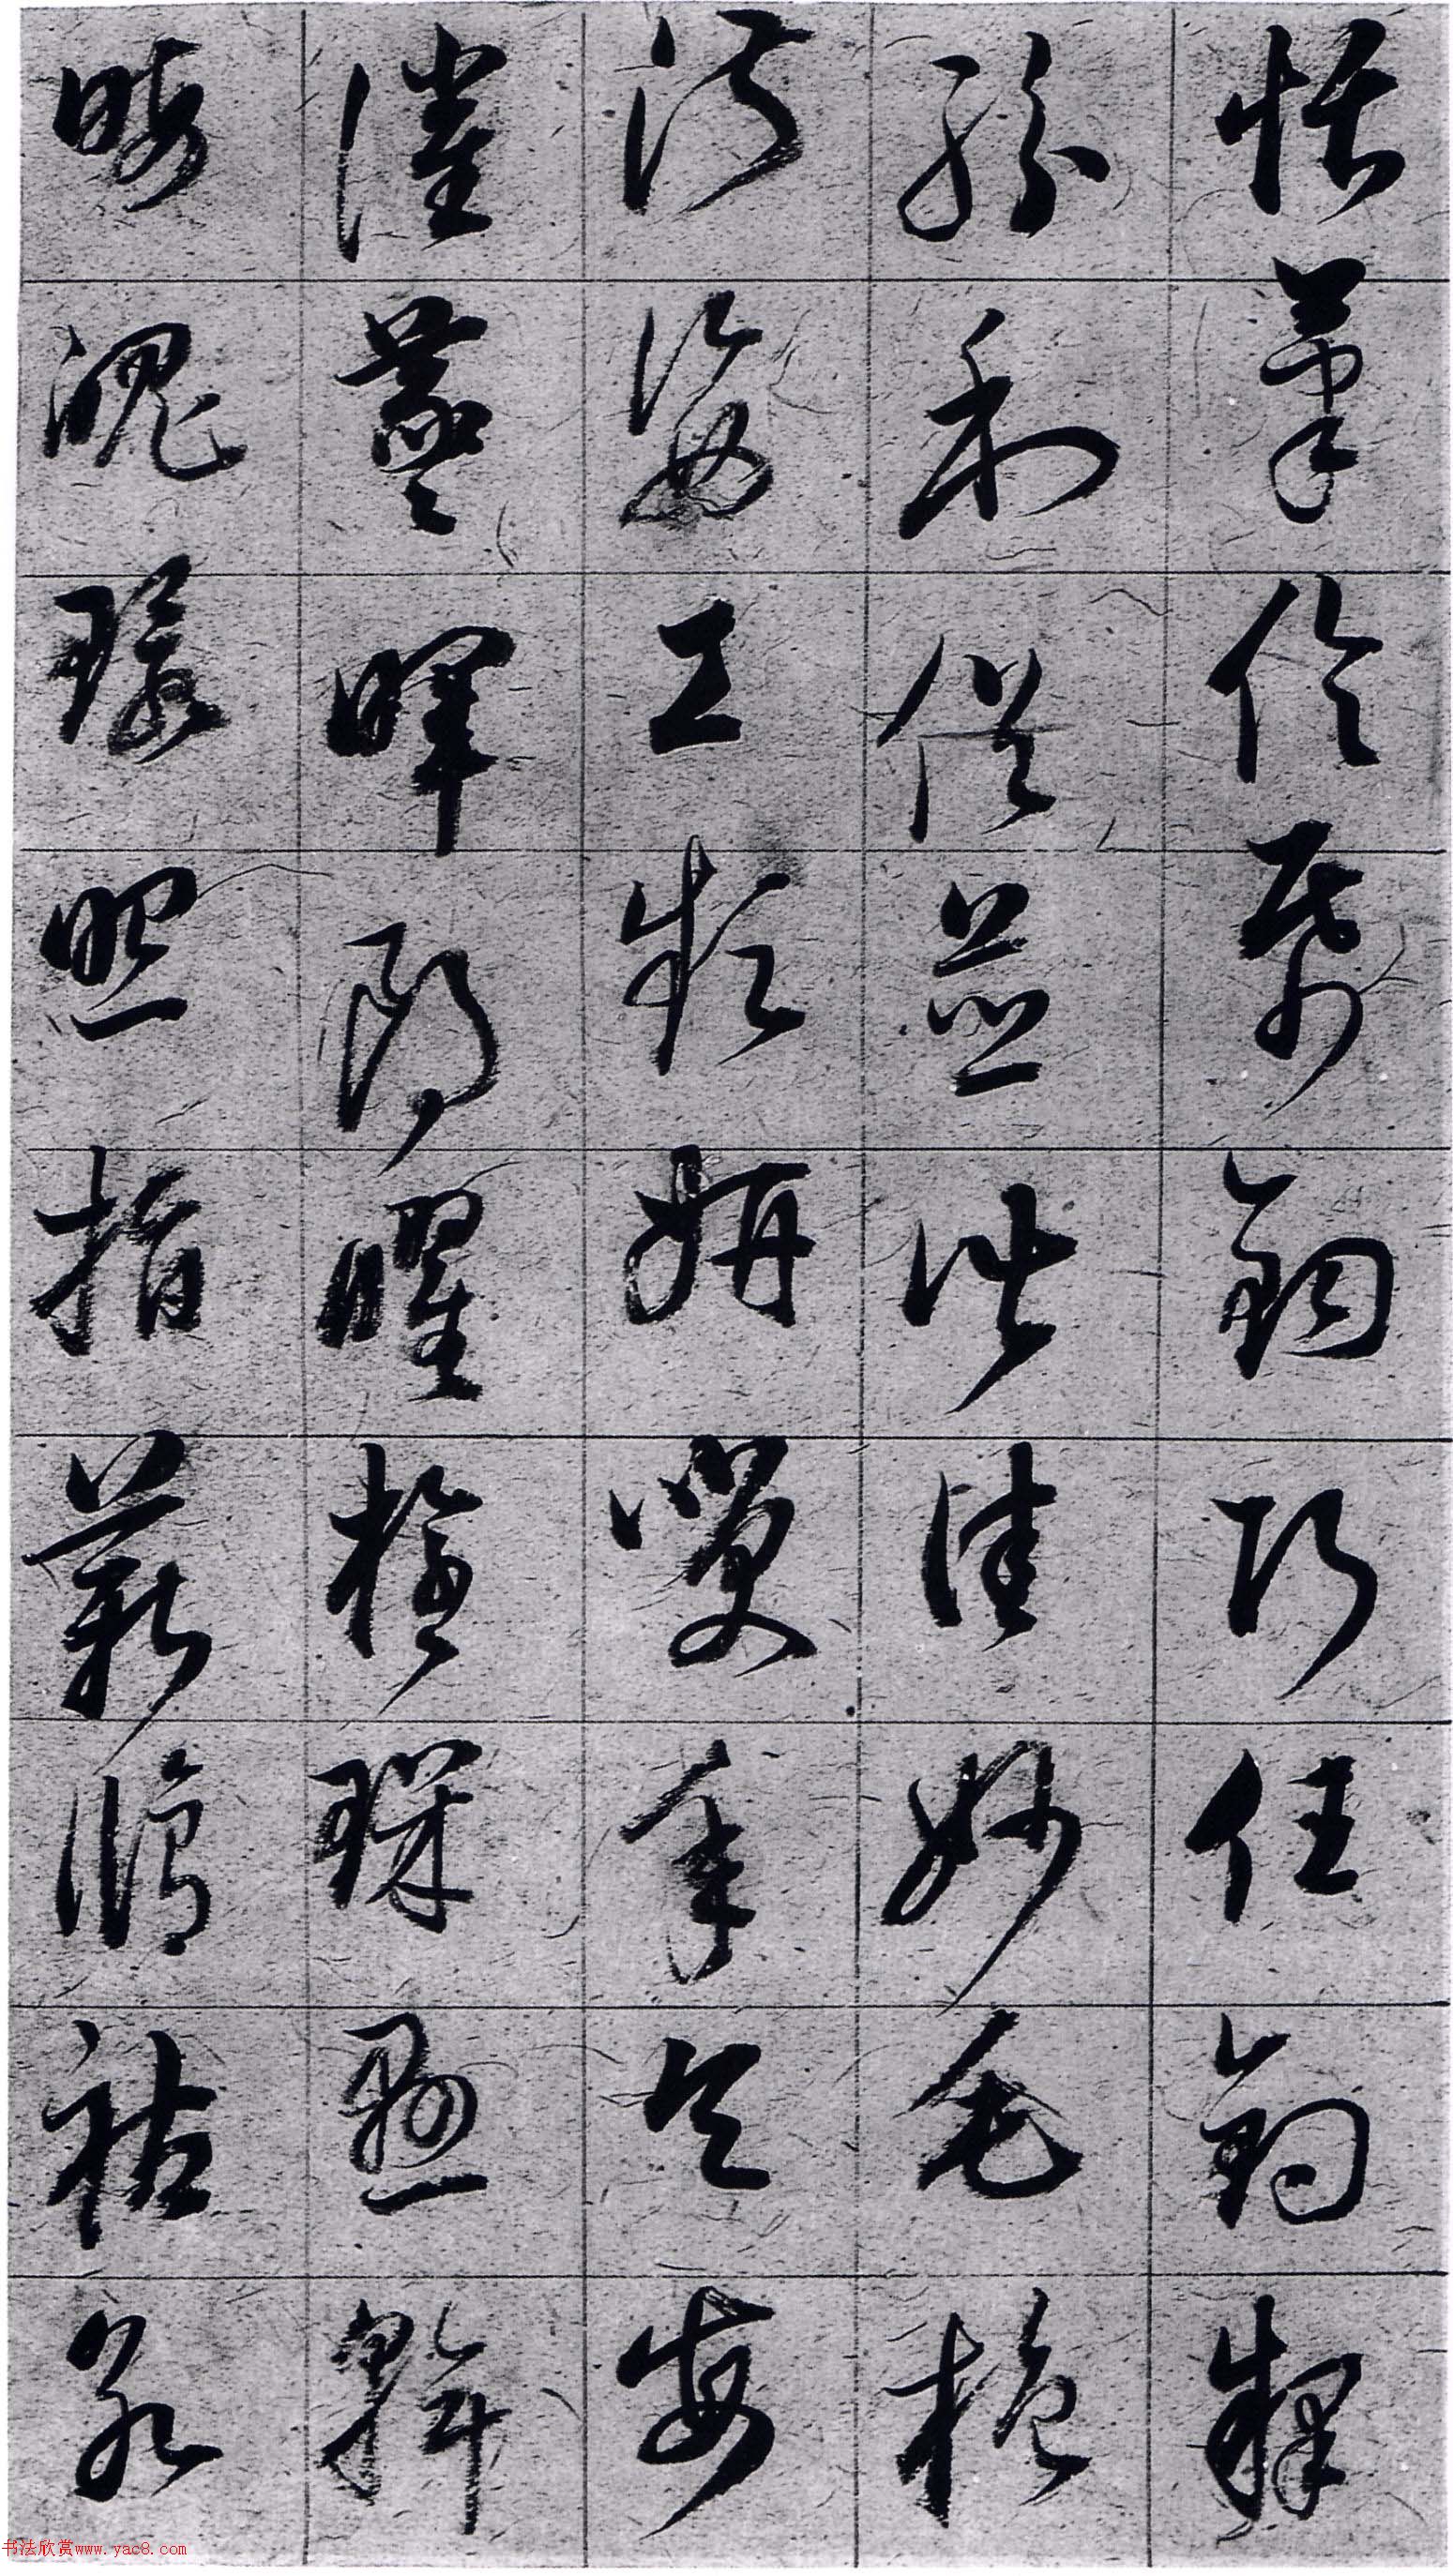 恬筆倫帋鈞巧任釣釋
紛利俗並皆佳妙毛施
淑姿工頻妍笑年矢每
催羲暉朗曜旋璣懸斡
晦魄環照指薪脩祜永
书法欣赏www.yac8.com